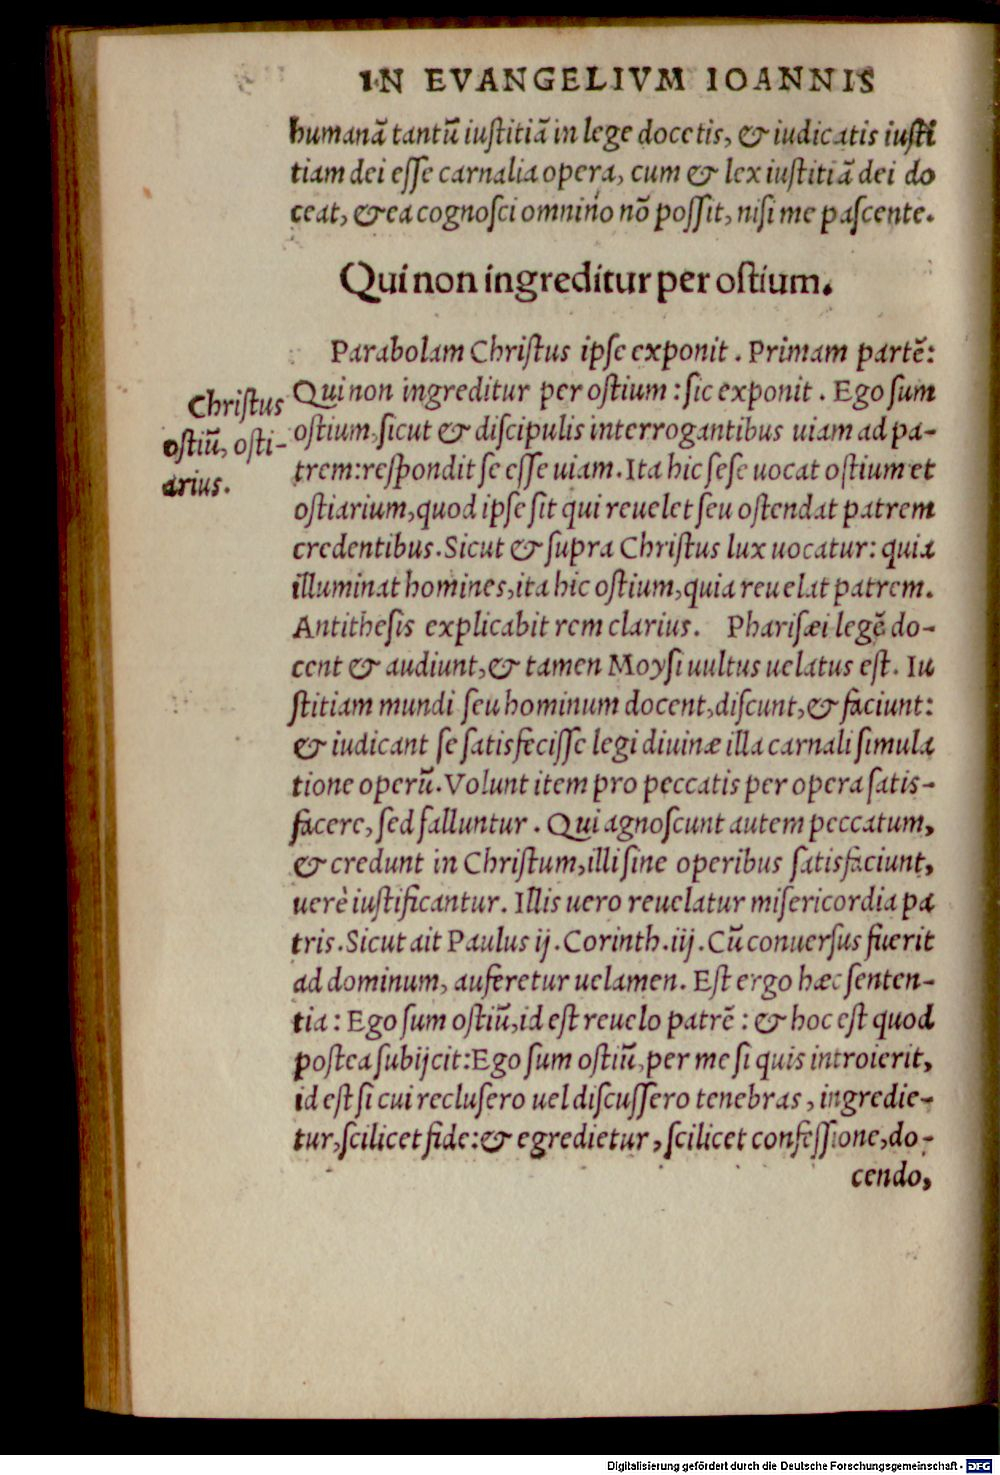 IN EVANGELIVM IOANNIS
humanã tantũ iustitiã in lege docetis, & iudicatis iusti
tiam dei esse carnalia opera, cum & lex iustitiã dei do
ceat, & ea cognosci omnino nõ possit, nisi me pascente.
Qui non ingreditur per ostium.
Parabolam Christus ipse exponit. Primam partẽ:
Qui non ingreditur per ostium: sic exponit. Ego sum
ostium, sicut & discipulis interrogantibus uiam ad pa-
trem: respondit se esse uiam. Ita hic sese uocat ostium et
ostiarium, quod ipse sit qui reuelet seu ostendat patrem
credentibus. Sicut & supra Christus lux uocatur: quia
illuminat homines, ita hic ostium, quia reuelat patrem.
Antithesis explicabit rem clarius. Pharisæi legẽ do-
cent & audiunt, & tamen Moysi uultus uelatus est. Iu
stitiam mundi seu hominum docent, discunt, & faciunt:
& iudicant se satisfecisse legi diuinæ illa carnali simula
tione operũ. Volunt item pro peccatis per opera satis-
facere, sed falluntur. Qui agnoscunt autem peccatum,
& credunt in Christum, illi sine operibus satisfaciunt,
uerè iustificantur. Illis uero reuelatur misericordia pa
tris. Sicut ait Paulus ij. Corinth. iij. Cũ conuersus fuerit
ad dominum, auferetur uelamen. Est ergo hæc senten-
tia: Ego sum ostiũ, id est reuelo patrẽ: & hoc est quod
postea subijcit: Ego sum ostiũ, per me si quis introierit,
id est si cui reclusero uel discussero tenebras, ingredie-
tur, scilicet fide: & egredietur, scilicet confessione, do-
cendo,
Christus
ostiũ, osti-
arius.
Digitalisierung gefördert durch die Deutsche Forschungsgemeinschaft - DFG